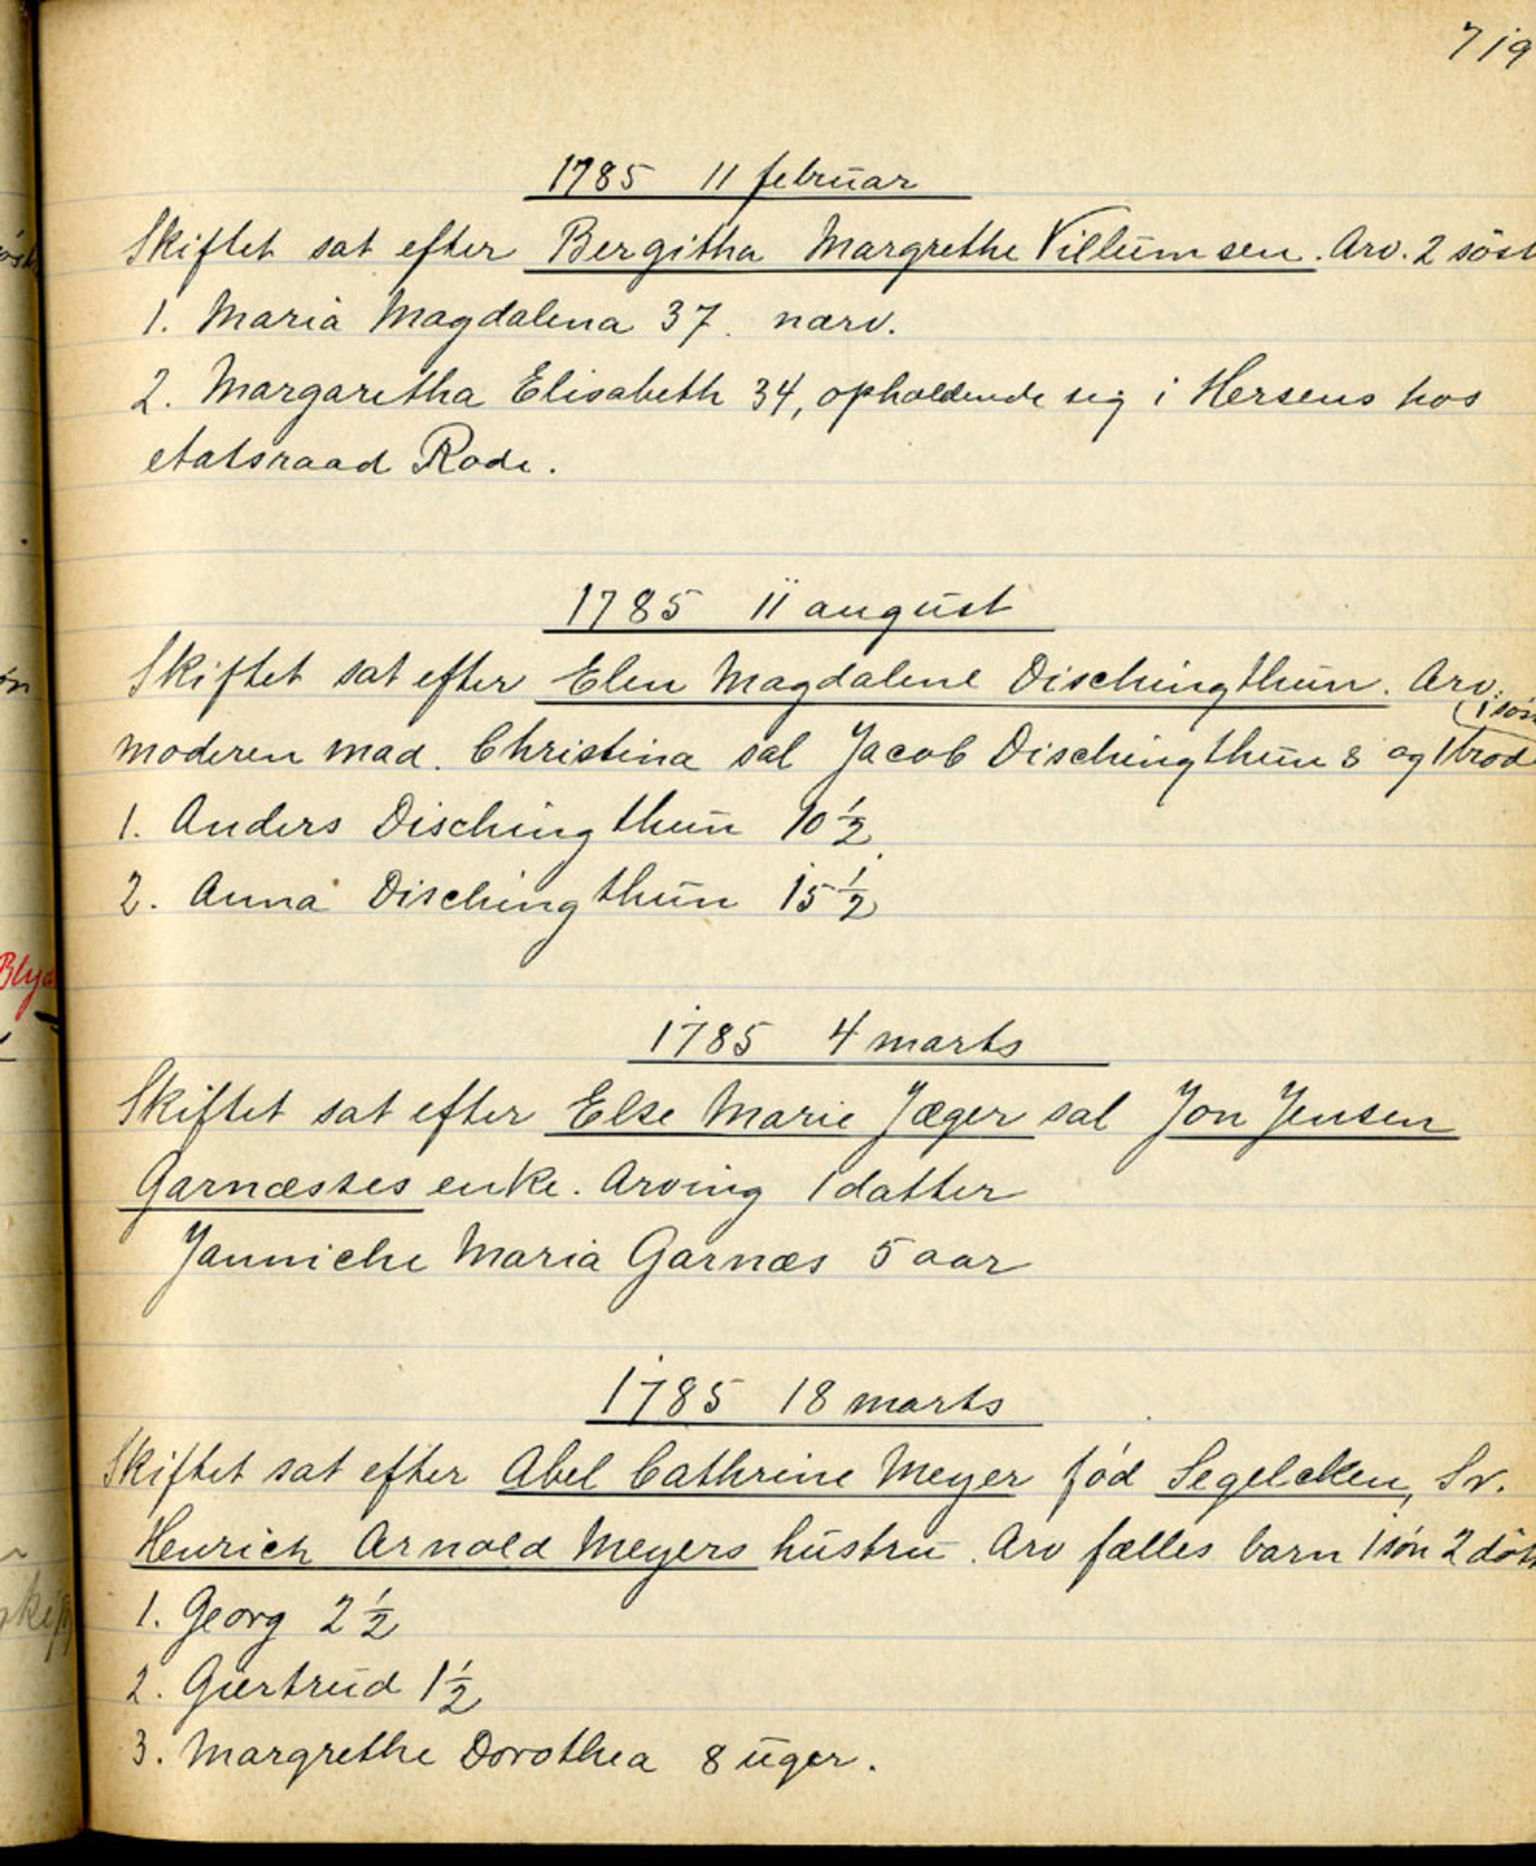 719
1785 11 februar
Skiftet sat efter Bergitha Margrethe Villumsen. Arv. 2 söst
1. Maria Magdalena 37. nærv.
2. Margaretha Elisabeth 34, opholdende sig i Hersens hos
etatsraad Rode.
1785 11 august
Skiftet sat efter Elen Magdalene Dischingthun. Arv.
1 søst
moderen mad. Christina sal Jacob Dischingthun s og 1 brod
1. Anders Dischingthun 10 1/2
2. Anna Dischingthun 15 1/2
1785 4 marts
Skiftet sat efter Else Marie Jæger sal Jon Jensen
Garnæsses enke. Arving 1 datter
Janniche Maria Garnæs 5 aar
1785 18 marts
Skiftet sat efter Abel Cathrine Meyer fód Segelcken, Sr.
Henrich Arnold Meyers hustru. Arv fælles barn 1 søn 2 döt
1. Georg 2 1/2
2. Giertrud 1 1/2
3. Margrethe Dorothea 8 uger.